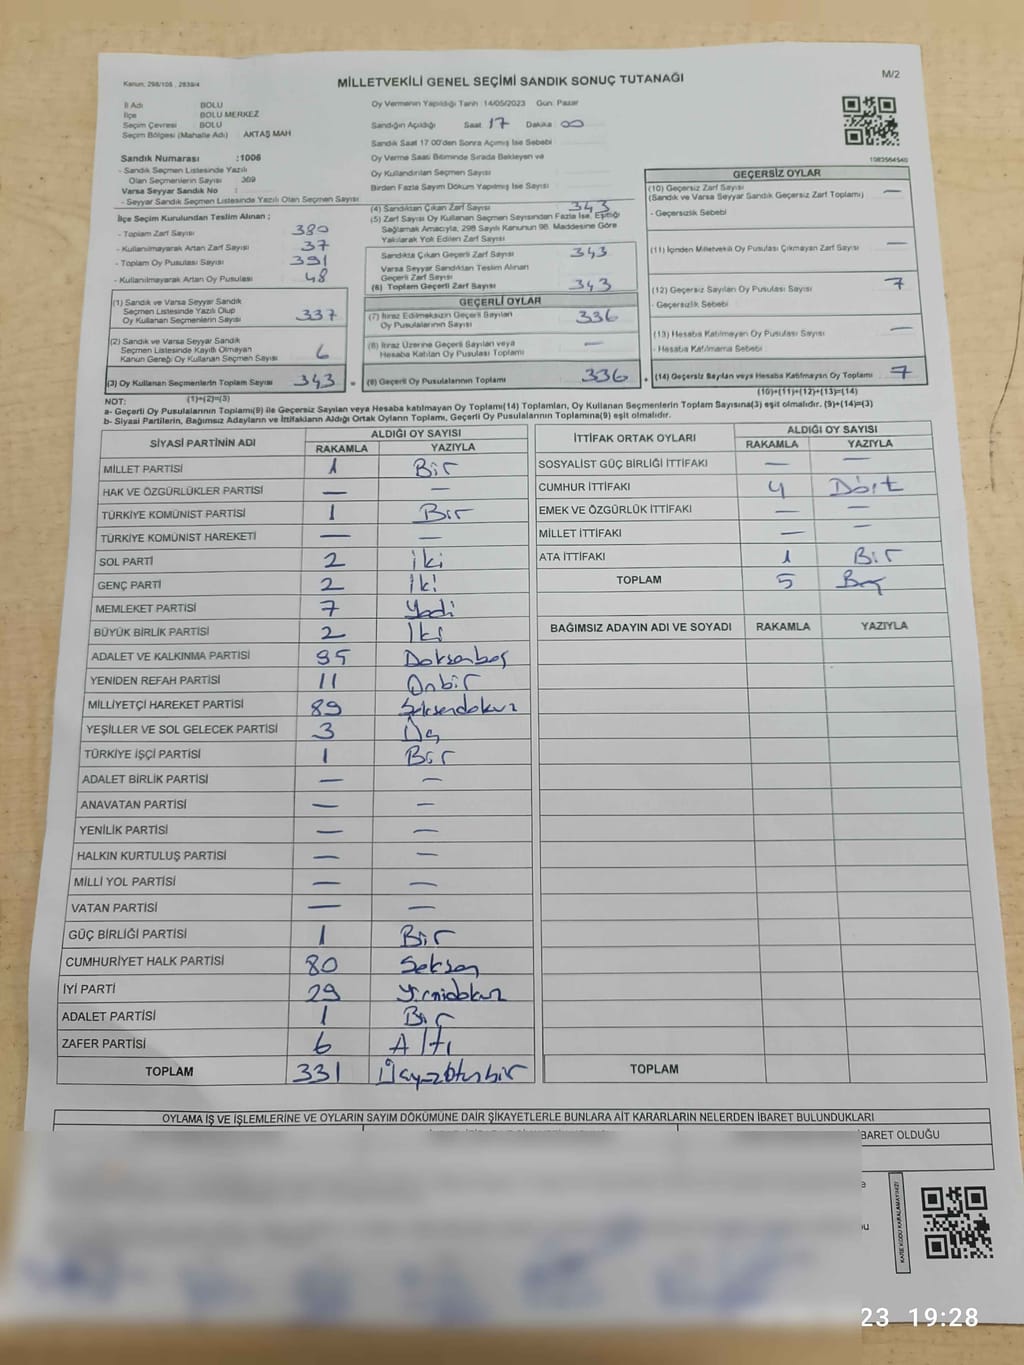 Kanun: 298/105 , 2839/4
MİLLETVEKİLİ GENEL SEÇİMİ SANDIK SONUÇ TUTANAĞI
M/2
İl Adı BOLU
İlçe BOLU MERKEZ
Seçim Çevresi BOLU
Seçim Bölgesi (Mahalle Adı) AKTAŞ MAH
Sandık Numarası :1006
- Sandık Seçmen Listesinde Yazılı
Olan Seçmenlerin Sayısı 369
Varsa Seyyar Sandık No :
- Seyyar Sandık Seçmen Listesinde Yazılı Olan Seçmen Sayısı
Oy Vermenin Yapıldığı Tarih 14/05/2023 Gün Pazar
Sandığın Açıldığı Saat 17 Dakika 00
Sandık Saat 17:00'den Sonra Açımış İse Sebebi
Oy Verme Saati Bitiminde Sırada Bekleyen ve
Oy Kullandırılan Seçmen Sayısı
Birden Fazla Sayım Döküm Yapılmış İse Sayısı
1083564540
İlçe Seçim Kurulundan Teslim Alınan ;
- Toplam Zarf Sayısı 380
- Kullanılmayarak Artan Zarf Sayısı 37
- Toplam Oy Pusulası Sayısı 391
- Kullanılmayarak Artan Oy Pusulası 48
(1) Sandık ve Varsa Seyyar Sandık
Seçmen Listesinde Yazılı Olup
Oy Kullanan Seçmenlerin Sayısı 337
(2) Sandık ve Varsa Seyyar Sandık
Seçmen Listesinde Kayıtlı Olmayan
Kanun Gereği Oy Kullanan Seçmen Sayısı 6
(3) Oy Kullanan Seçmenlerin Toplam Sayısı 343
(1)+(2)=(3)
(4) Sandıktan Çıkan Zarf Sayısı 343
(5) Zarf Sayısı Oy Kullanan Seçmen Sayısından Fazla İse, Eşitliği
Sağlamak Amacıyla, 298 Sayılı Kanunun 98. Maddesine Göre
Yakılarak Yok Edilen Zarf Sayısı
Sandıkta Çıkan Geçerli Zarf Sayısı 343
Varsa Seyyar Sandıktan Teslim Alınan
Geçerli Zarf Sayısı
(6) Toplam Geçerli Zarf Sayısı 343
GEÇERLİ OYLAR
(7) İtiraz Edilmeksizin Geçerli Sayılan
Oy Pusulalarının Sayısı 336
(8) İtiraz Üzerine Geçerli Sayılan veya
Hesaba Katılan Oy Pusulası Toplamı —
(9) Geçerli Oy Pusulalarının Toplamı 336
GEÇERSİZ OYLAR
(10) Geçersiz Zarf Sayısı
(Sandık ve Varsa Seyyar Sandık Geçersiz Zarf Toplamı) —
- Geçersizlik Sebebi
(11) İçinden Milletvekili Oy Pusulası Çıkmayan Zarf Sayısı —
(12) Geçersiz Sayılan Oy Pusulası Sayısı 7
- Geçersizlik Sebebi
(13) Hesaba Katılmayan Oy Pusulası Sayısı —
- Hesaba Katılmama Sebebi
(14) Geçersiz Sayılan veya Hesaba Katılmayan Oy Toplamı 7
(10)+(11)+(12)+(13)=(14)
NOT:
a- Geçerli Oy Pusulalarının Toplamı(9) ile Geçersiz Sayılan veya Hesaba katılmayan Oy Toplamı(14) Toplamları, Oy Kullanan Seçmenlerin Toplam Sayısına(3) eşit olmalıdır. (9)+(14)=(3)
b- Siyasi Partilerin, Bağımsız Adayların ve İttifakların Aldığı Ortak Oyların Toplamı, Geçerli Oy Pusulalarının Toplamına(9) eşit olmalıdır.
SİYASİ PARTİNİN ADI ALDIĞI OY SAYISI
RAKAMLA YAZIYLA
MİLLET PARTİSİ 1 Bir
HAK VE ÖZGÜRLÜKLER PARTİSİ — —
TÜRKİYE KOMÜNİST PARTİSİ 1 Bir
TÜRKİYE KOMÜNİST HAREKETİ — —
SOL PARTİ 2 iki
GENÇ PARTİ 2 iki
MEMLEKET PARTİSİ 7 Yedi
BÜYÜK BİRLİK PARTİSİ 2 İki
ADALET VE KALKINMA PARTİSİ 95 Doksanbeş
YENİDEN REFAH PARTİSİ 11 Onbir
MİLLİYETÇİ HAREKET PARTİSİ 89 Seksendokuz
YEŞİLLER VE SOL GELECEK PARTİSİ 3 Üç
TÜRKİYE İŞÇİ PARTİSİ 1 Bir
ADALET BİRLİK PARTİSİ — —
ANAVATAN PARTİSİ — —
YENİLİK PARTİSİ — —
HALKIN KURTULUŞ PARTİSİ — —
MİLLİ YOL PARTİSİ — —
VATAN PARTİSİ — —
GÜÇ BİRLİĞİ PARTİSİ 1 Bir
CUMHURİYET HALK PARTİSİ 80 Seksen
İYİ PARTİ 29 Yirmidokuz
ADALET PARTİSİ 1 Bir
ZAFER PARTİSİ 6 Altı
TOPLAM 331 Üçyüzotuzbir
İTTİFAK ORTAK OYLARI ALDIĞI OY SAYISI
RAKAMLA YAZIYLA
SOSYALİST GÜÇ BİRLİĞİ İTTİFAKI — —
CUMHUR İTTİFAKI 4 Dört
EMEK VE ÖZGÜRLÜK İTTİFAKI — —
MİLLET İTTİFAKI — —
ATA İTTİFAKI 1 Bir
TOPLAM 5 Beş
BAĞIMSIZ ADAYIN ADI VE SOYADI RAKAMLA YAZIYLA
TOPLAM
OYLAMA İŞ VE İŞLEMLERİNE VE OYLARIN SAYIM DÖKÜMÜNE DAİR ŞİKAYETLERLE BUNLARA AİT KARARLARIN NELERDEN İBARET BULUNDUKLARI
BARET OLDUĞU
KARE KODU KARALAMAYINIZ!
23 19:28